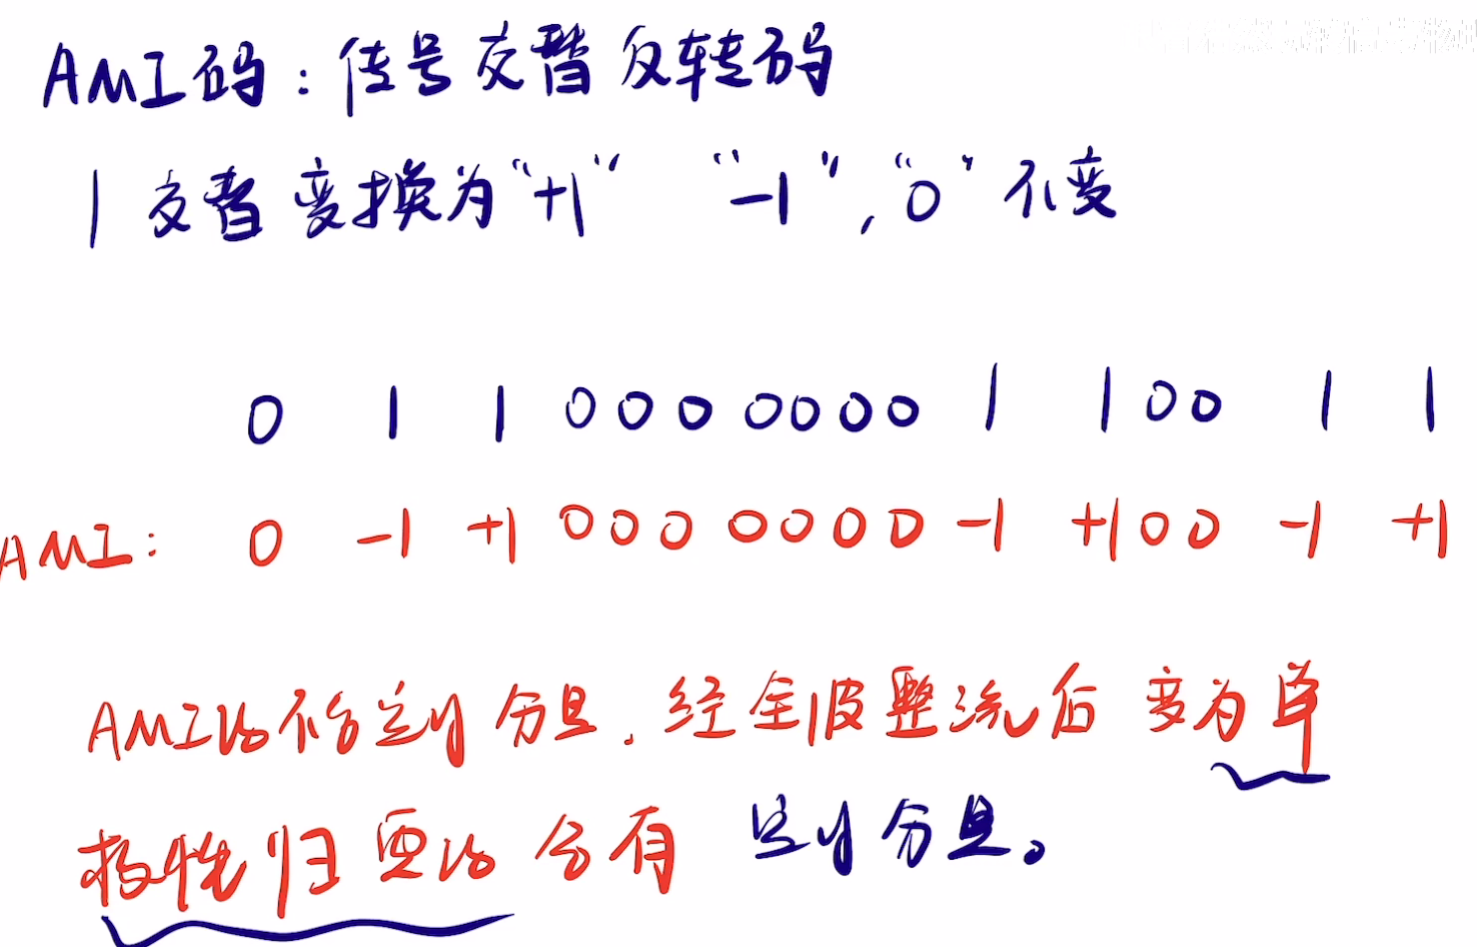 AMI码：传号交替反转码
1 交替变换为“+1” “-1”，“0”不变
0 1 1 0 0 0 0 0 0 0 1 1 0 0 1 1
AMI： 0 -1 +1 0 0 0 0 0 0 0 -1 +1 0 0 -1 +1
AMI码不含定时分量，经全波整流后变为单
极性归零码含有定时分量。